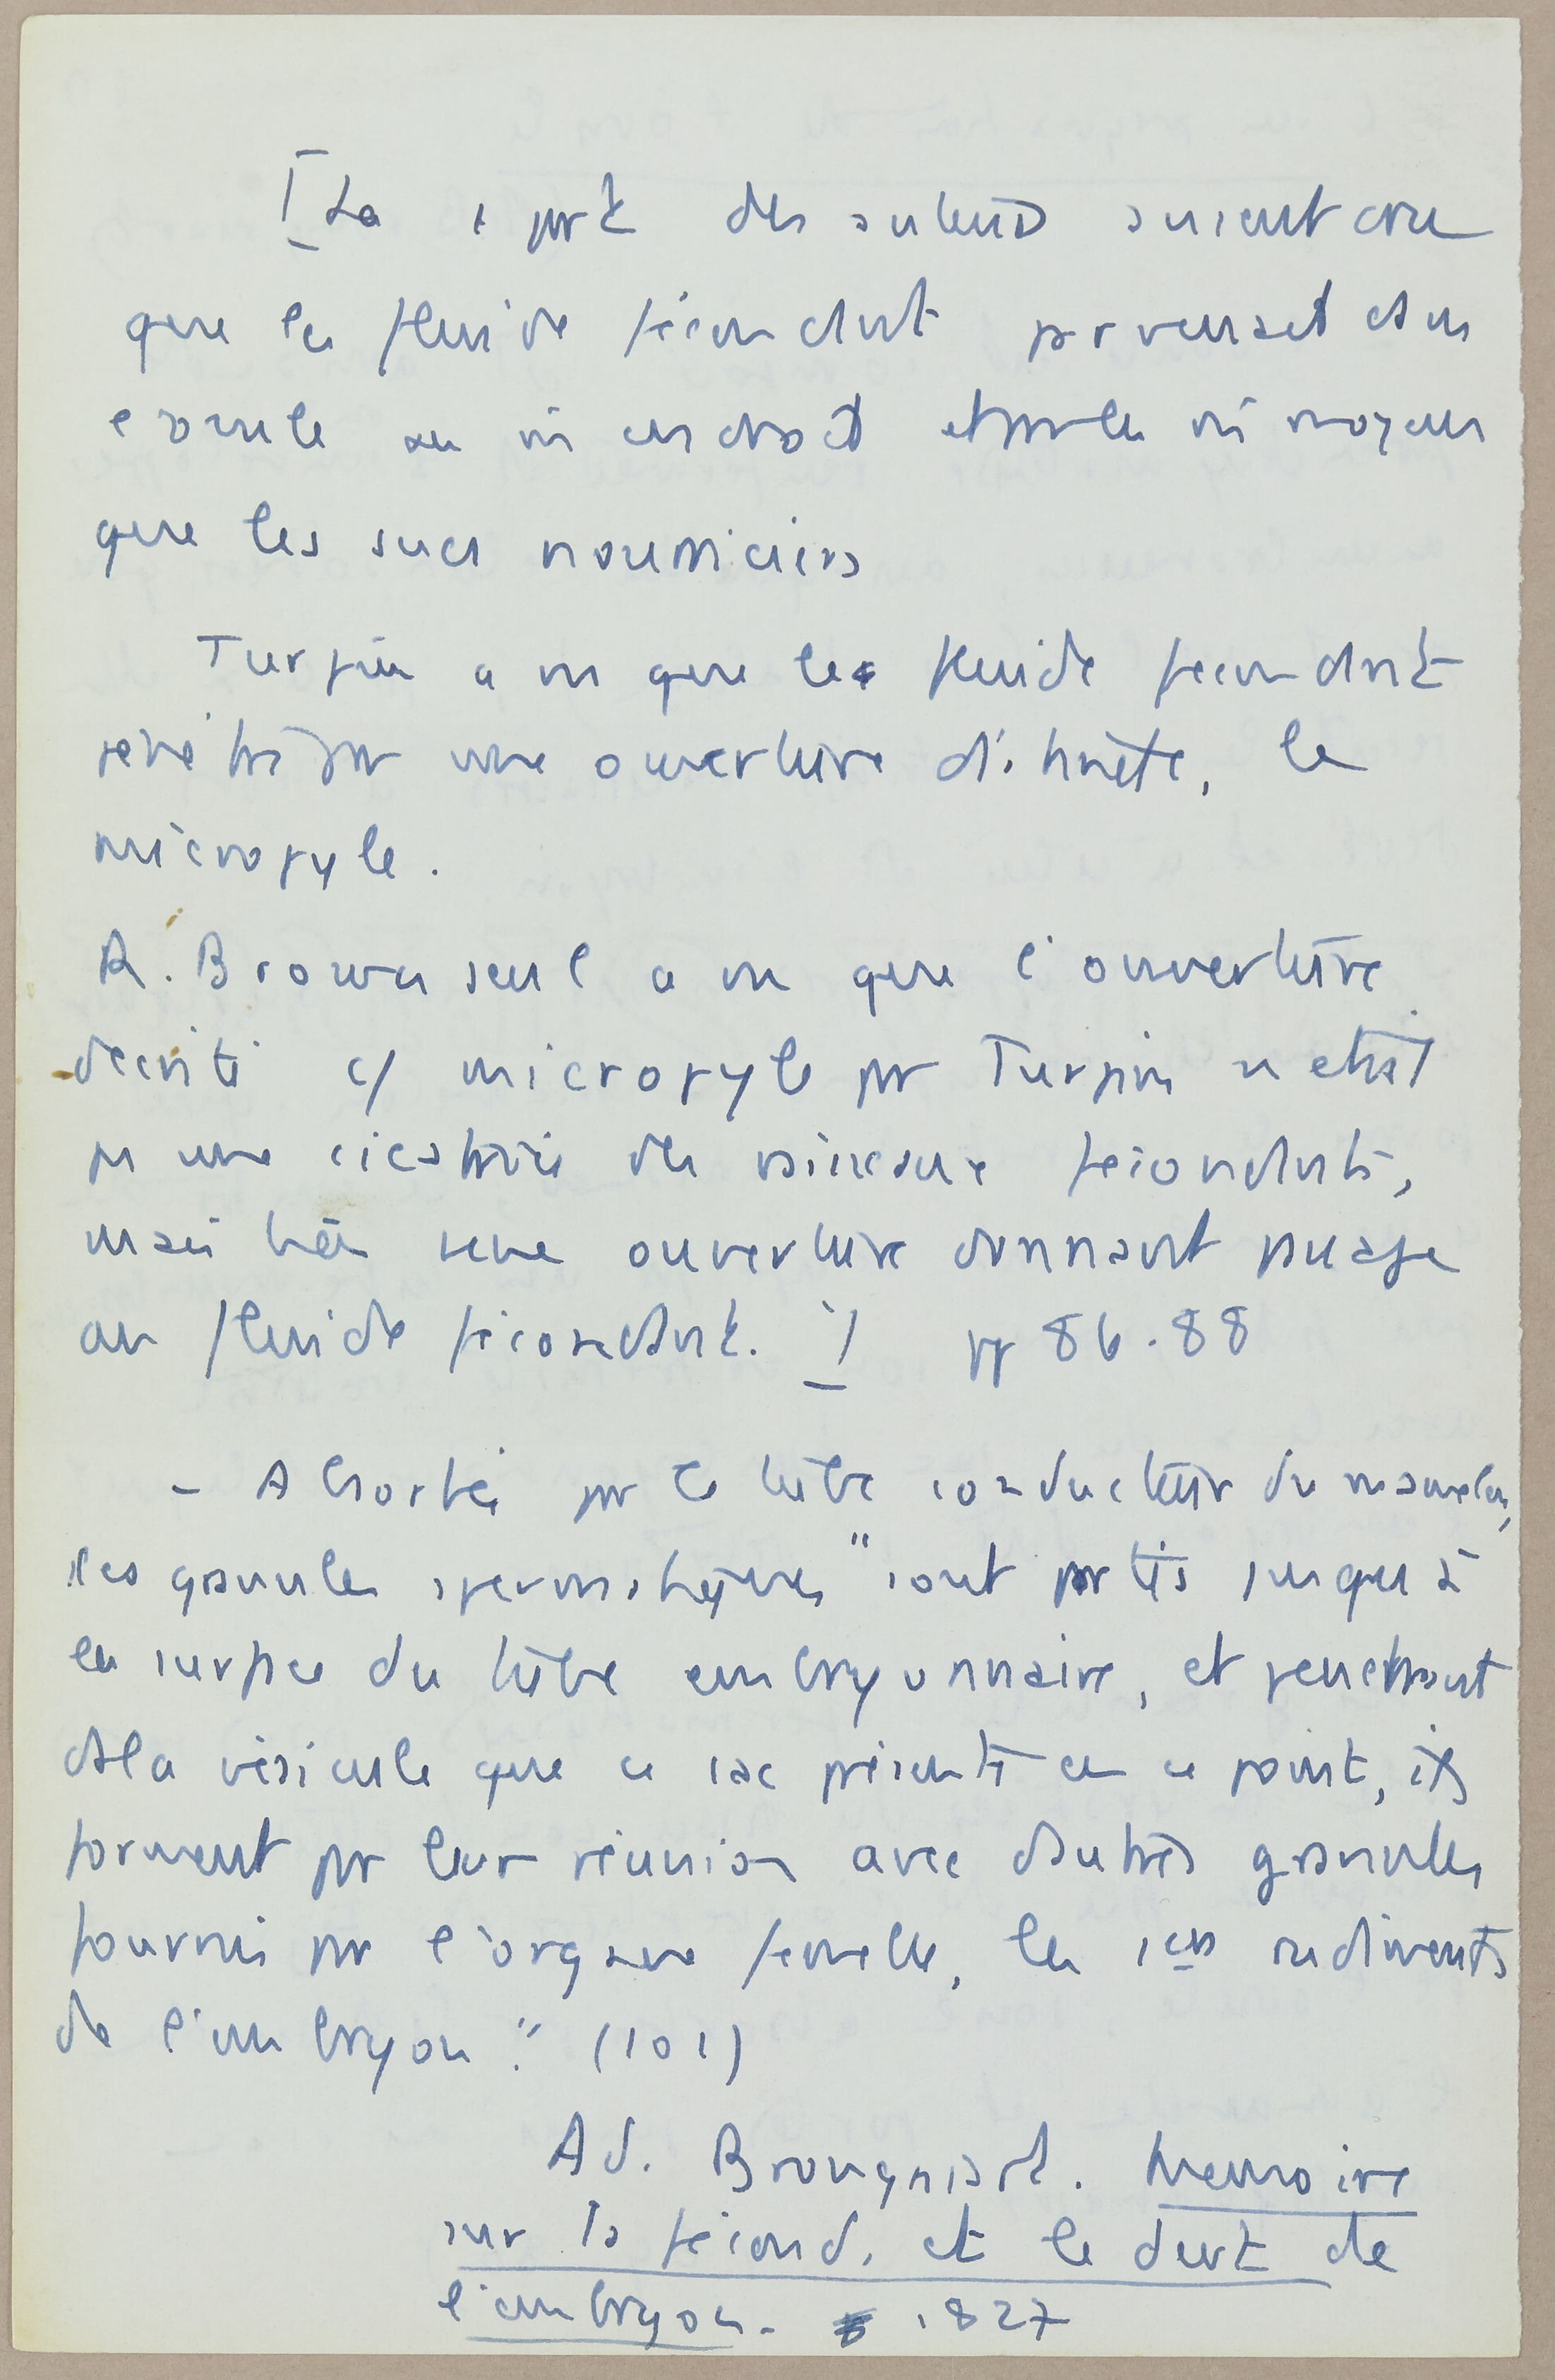 [La + part des auteurs avaient cru
que le fluide fécondant parvenait ds
l'ovule au m endroit et par les m moyens
que les sucs nourriciers
Turpin a vu que le fluide fecondant
penetrait par une ouverture distincte, le
micropyle.
R. Brown seul a vu que l'ouverture
décrite c/ micropyle pr Turpin n'etait
pas une cicatrice des vaisseaux fécondants,
mais bien une ouverture donnant passage
au fluide fécondant.] pp 86.88
- Absorbés pr le tube conducteur du mamelon,
les granules spermatiques "sont portés jusqu'à
la surface du tube embryonnaire, et penetrant
ds la vésicule que ce sac présente en ce point, ils
forment pr leur réunion avec d'autres granules
fournis pr l'organe femelle, les 1ers rudiments
de l'embryon." (101)
Ad. Brongniart. Memoire
sur la fécond. et le devt de
l'embryon. 1827